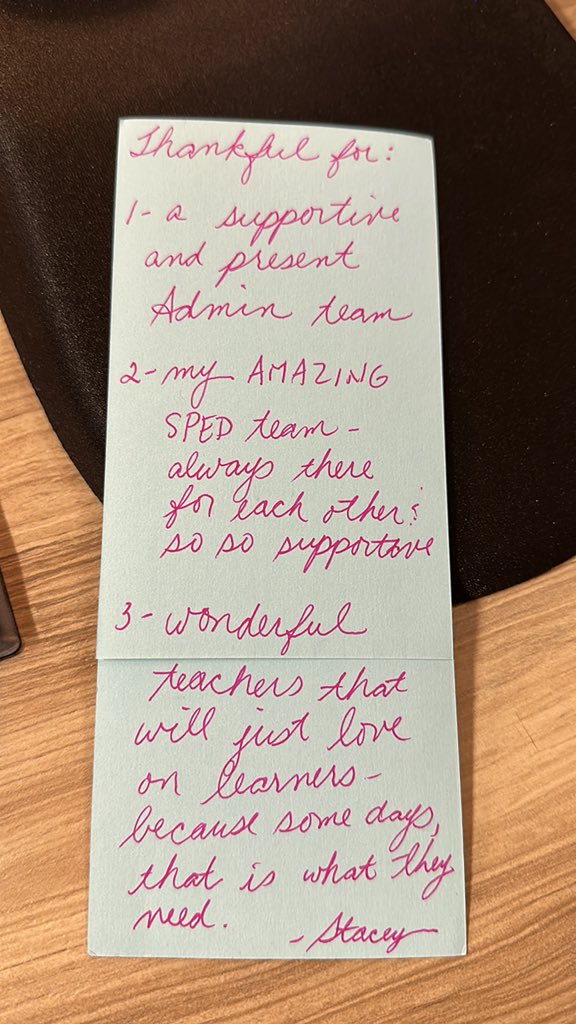 Thankful for:
1- a supportive
and present
Admin team
2- my AMAZING
SPED team -
always there
for each other &
so so supportive
3- wonderful
teachers that
will just love
on learners -
because some days,
that is what they
need.
- Stacey